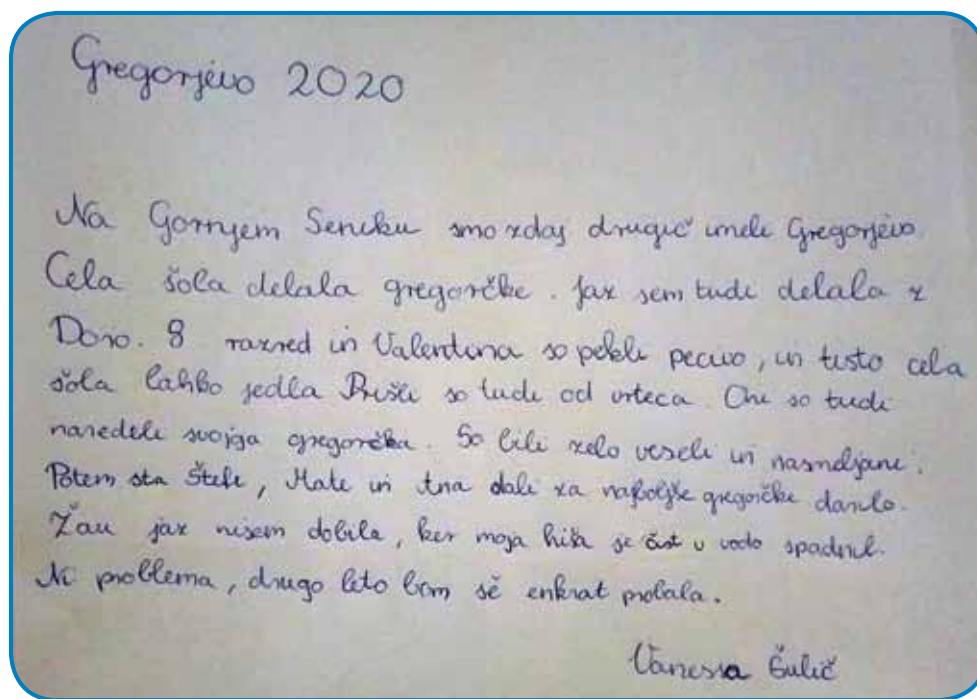 Gregorjevo 2020
Na Gornjem Seniku smo zdaj drugič imeli Gregorjevo.
Cela šola delala gregorčke. Jaz sem tudi delala z
Doro. 8 razred in Valentina so pekli pecivo, in tisto cela
šola lahko jedla Prišli so tudi od vrteca. Oni so tudi
naredili svojga gregorčka. So bili zelo veseli in nasmejani.
Potem sta Štefi, Mate in Ana dali za najboljše gregorčke darilo.
Žau jaz nisem dobila, ker moja hiša je čist v vodo spadnil.
Ni problema, drugo leto bom še enkrat probala.
Vanessa Čulič